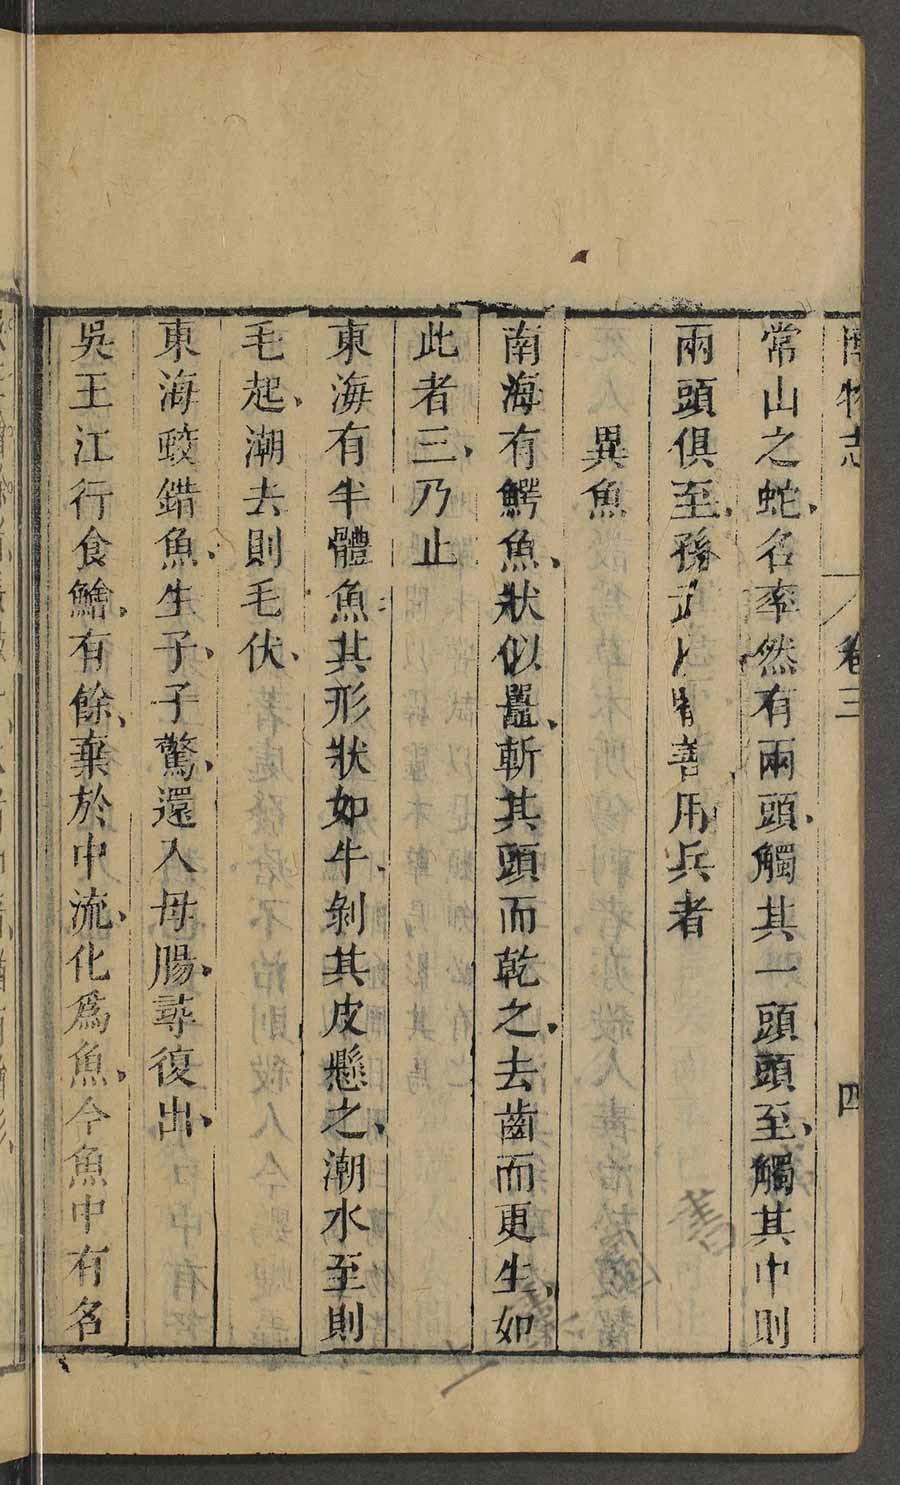 博物志 卷三 四
常山之蛇名率然有兩頭觸其一頭頭至觸其中則
兩頭俱至孫武以喻善用兵者
異魚
南海有鰐魚狀似鼉斬其頭而乾之去齒而更生如
此者三乃止
東海有半體魚其形狀如牛剝其皮懸之潮水至則
毛起潮去則毛伏
東海蛟錯魚生子子驚還入母腸尋復出
吳王江行食鱠有餘棄於中流化為魚今魚中有名